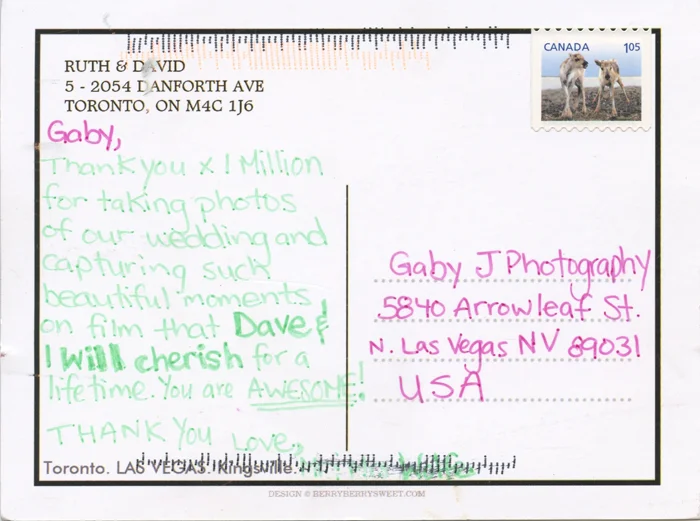 RUTH & DAVID
5 - 2054 DANFORTH AVE
TORONTO, ON M4C 1J6
CANADA 105
Gaby,
Thank you x 1 Million
for taking photos
of our wedding and
capturing such
beautiful moments,
on film that Dave &
I will cherish for a
lifetime. You are AWESOME!
THANK YOU LOVE,
Gaby J Photography
5840 Arrowleaf St.
N. Las Vegas NV 89031
USA
Toronto. LAS VEGAS. Kingsville.
DESIGN © BERRYBERRYSWEET.COM